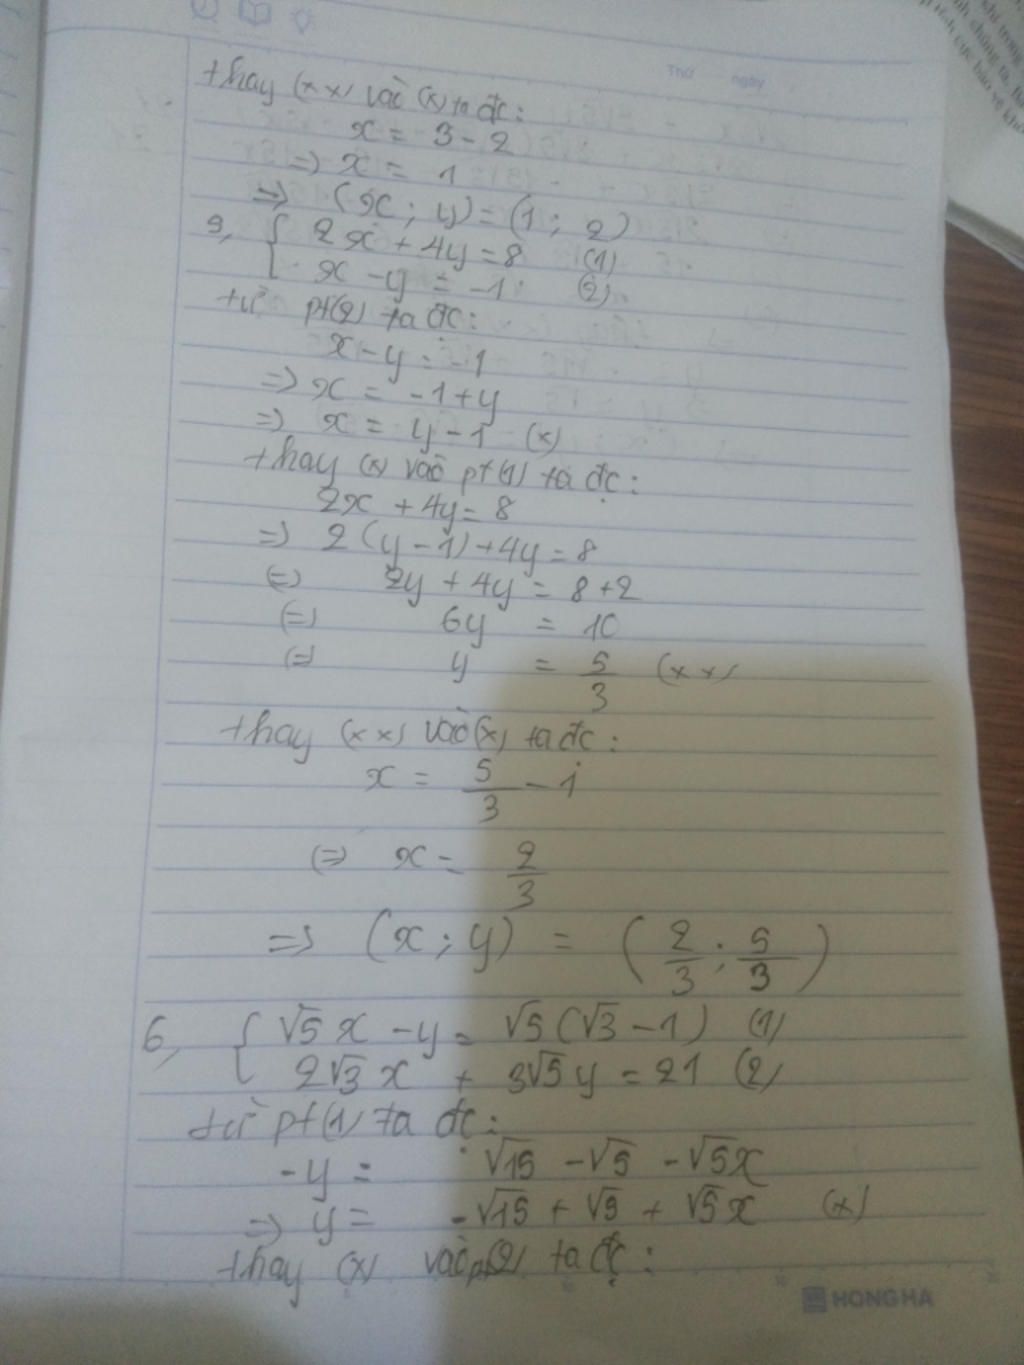 Thứ ngày
thay (xx) vào (x) ta đc:
x = 3 - 2
=> x = 1
=> (x ; y) = (1 ; 2)
9, { 2x + 4y = 8 (1)
x - y = -1 (2)
từ pt(2) ta đc:
x - y = -1
=> x = -1 + y
=> x = y - 1 (x)
thay (x) vào pt(1) ta đc:
2x + 4y = 8
=> 2(y - 1) + 4y = 8
(=) 2y + 4y = 8 + 2
(=) 6y = 10
(=) y = 5/3 (xx)
thay (xx) vào (x) ta đc:
x = 5/3 - 1
(=) x = 2/3
=> (x ; y) = (2/3 ; 5/3)
6, { √5x - y = √5(√3 - 1) (1)
2√3x + 3√5y = 21 (2)
từ pt(1) ta đc:
-y = √15 - √5 - √5x
=> y = -√15 + √5 + √5x (x)
thay (x) vào pt(2) ta đc:
HONG HA